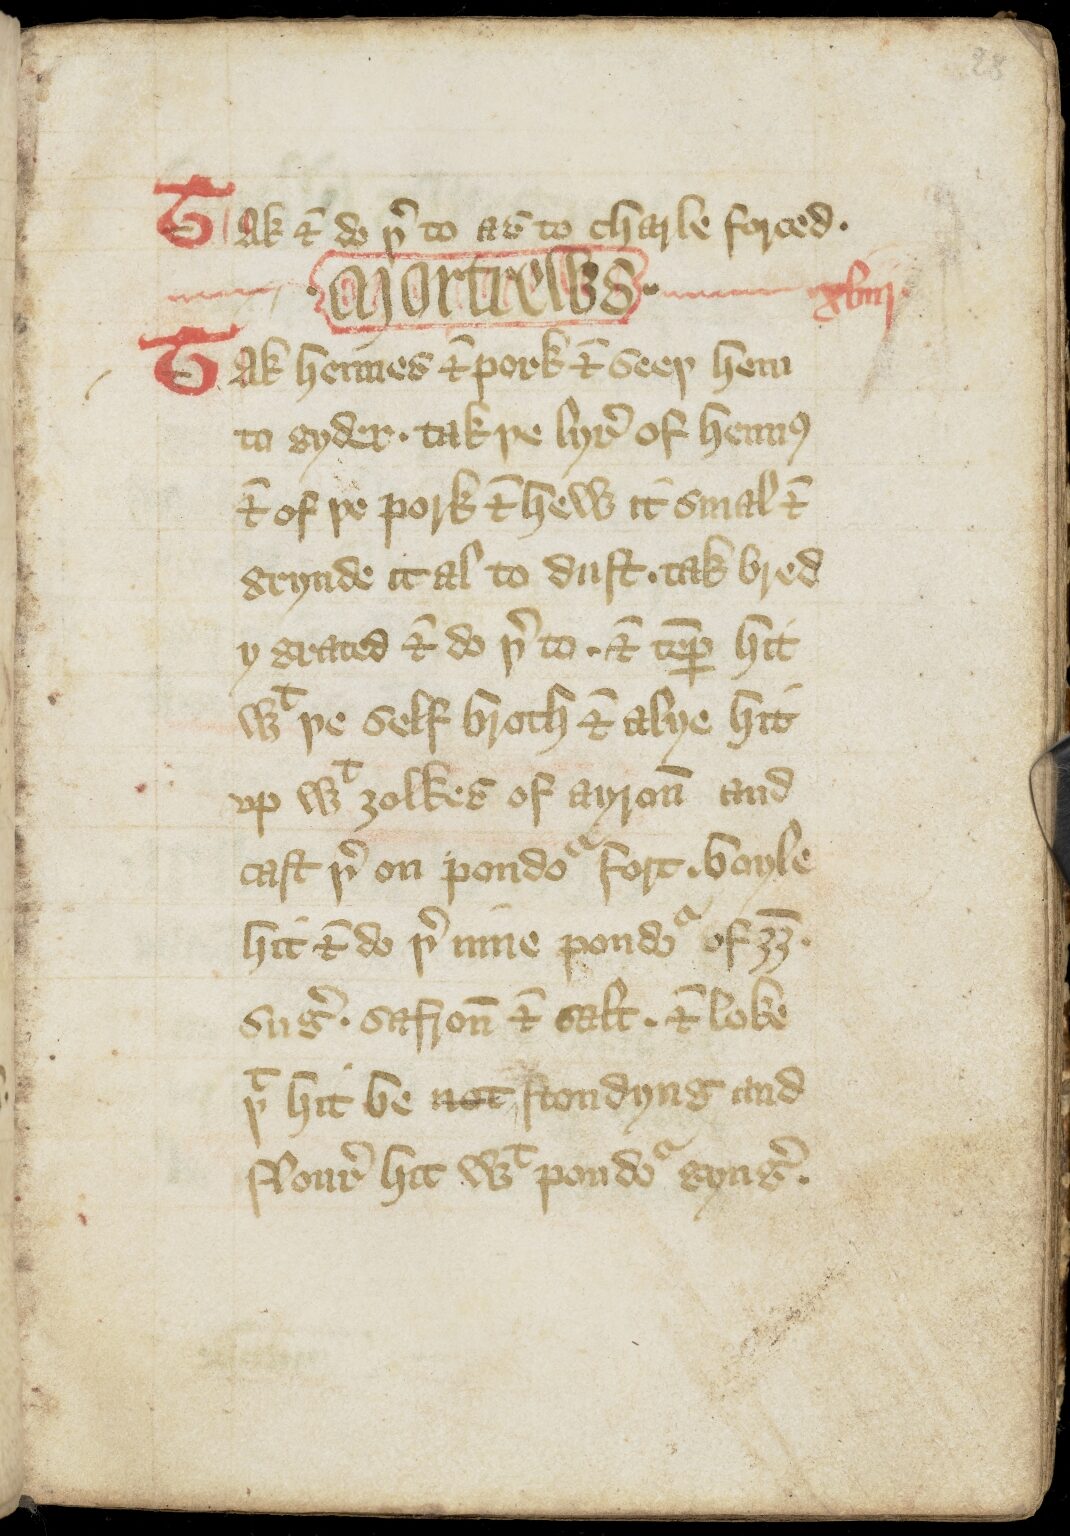 28
Tak ⁊ do þ͛ to as to charle forced.
.Mortrews. xlviij.
Tak hennes ⁊ pork ⁊ seeþ hem
to gyder. tak þe lyr͛ of hennꝰ
⁊ of þe pork ⁊ hew it smal ⁊
grynde it al to dust. tak bred
y grated ⁊ do þ͛ to. ⁊ temꝑ hit
wᵗ þe self broth ⁊ alye hit
vp wᵗ ȝolkes of ayron̄ and
cast þ͛ on pondoᵃ fort. boyle
hit ⁊ do þ͛ inne pondoᵃ of ȝȝ̄.
sug͛. safron̄ ⁊ salt. ⁊ loke
þᵗ hit be not stondyng and
flour͛ hit wᵗ pondoᵃ gyng͛.